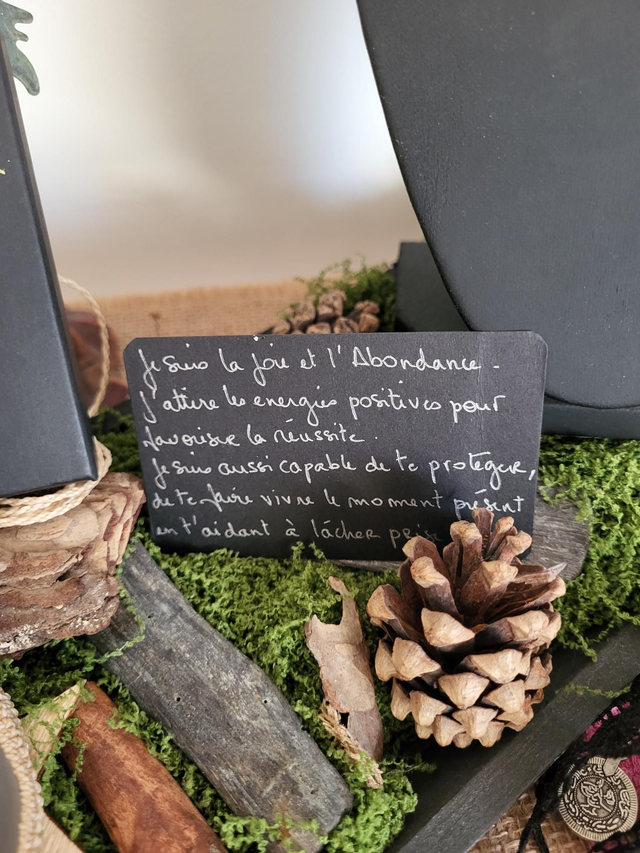 Je suis la joie et l'Abondance.
J'attire les energies positives pour
favoriser la réussite.
Je suis aussi capable de te protéger,
de te faire vivre le moment présent
en t'aidant à lâcher prise